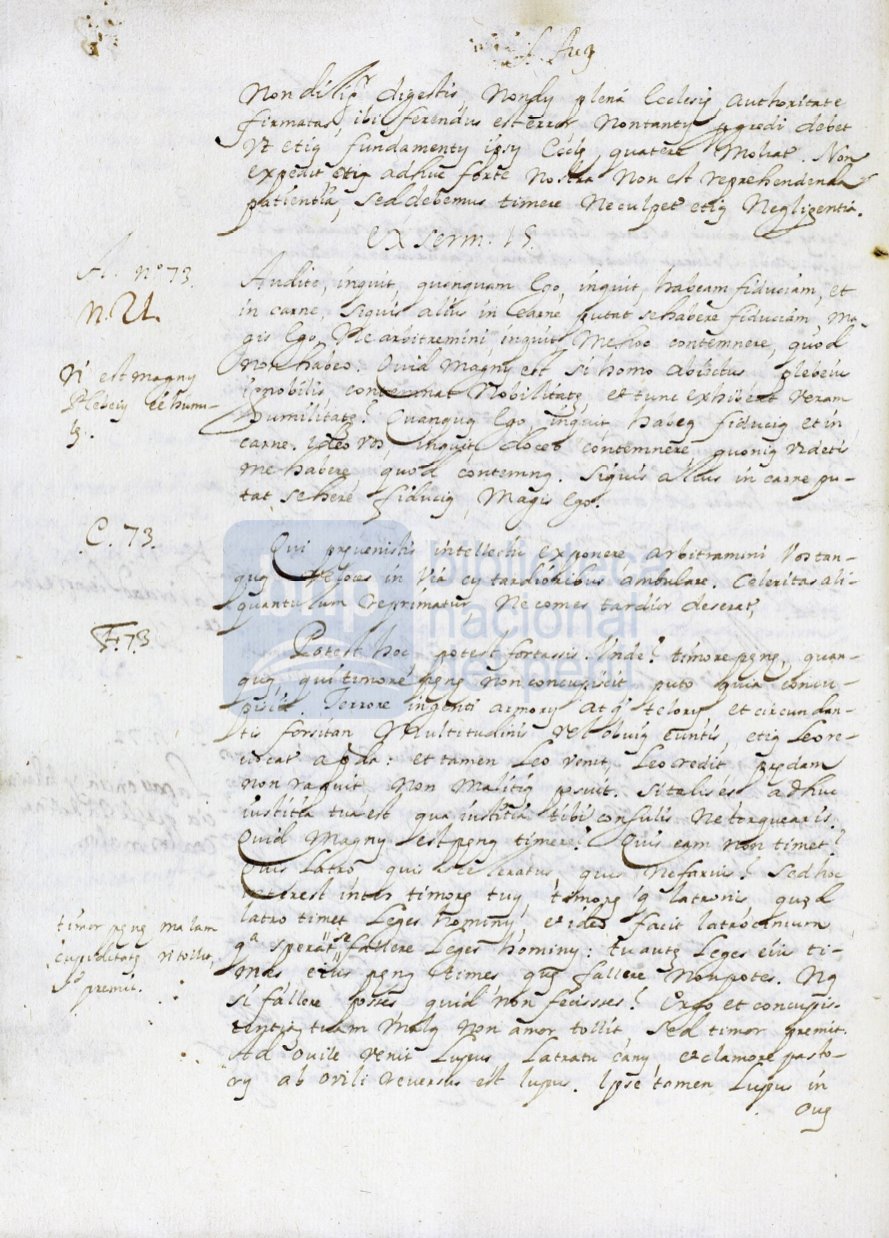 S. Aug
Non diligr digestis Nondũ plena Ecclesie Authoritate
firmatas, ibi ferendus est error Nontantũ pgredi debet
Vt etiã fundamentũ ipsũ Eccle quatere Moliat. Non
expedit etiã adhuc forte Nostra non est reprehendenda
patientia, Sed debemus timere Ne culpet etiã Negligentia.
Ex Serm. 15.
A. no 73.
Audite, inquit, quanquam Ego, inquit, habeam fiduciam, et
N. 21.
in carne, Siquis alius in carne putat se habere fiduciam Ma-
gis Ego, Ne arbitremini, inquit, Me hoc contemnere, quod
non habeo. Quid Magnũ est si homo abiectus plebeius
Nõ est magnũ
Plebeiũ ee humi-
lẽ.
ignobilis, contemnat Nobilitatẽ, et tunc exhibeat Veram
humilitatẽ? Quanquã Ego, inquit, habeã fiduciã et in
carne. Ideo Vos, inquit, docet contemnere quoniã Videtis
me habere quod contemnã. Siquis Alius in carne pu-
tat se here fiduciã, Magis Ego.
C. 73.
Qui prevenistis intellectu exponere arbitramini Vos tan-
quã Veloces in Via cũ tardioribus ambulare. Celeritas ali-
quantulum reprimatur, Ne comes tardior deserat,
F. 73
Potest hoc, potest fortassis. Unde? timore penẽ, quan-
quã, qui timore penẽ non concupiscit puto quia concu-
piscit. Terrore ingenti armorũ Atq telorũ et circundan-
tis forsitan Multitudinis Vel obviã euntis, etiã Leo re-
vocat a pda: et tamen Leo venit, Leo redit, predam
non rapuit, Non Malitiã posuit. Si talis es adhuc
iustitia tua est qua iustitia tibi consulis Ne torquearis.
Quid Magnũ est penã timere? Quis eam non timet?
Quis Latro quis Sceleratus quis Nefarius? Sed hoc
interest inter timorẽ tuũ, timorẽ q latronis, quod
latro timet Leges hominũ, et ideo facit latrocinium
timor penẽ malam
cupiditatẽ nõ tollit,
sed premit.
qa sperat se fallere Leges hominũ: tu autẽ Leges eius ti-
mes eius penã times quẽ fallere Non potes. Nã
si fallere posses quid non fecisses? Ergo et concupis-
centiã tuam Malã Non amor tollit Sed timor premit.
Ad Ovile Venit Lupus Latratu canũ et clamore pasto-
rũ ab ovili reversus est lupus. Ipse tamen Lupus in
Ouẽ